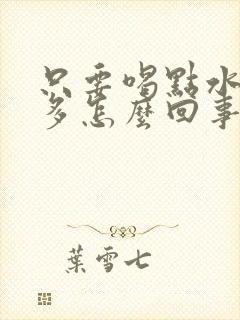 只要喝點水
多怎麼回事
葉雪七